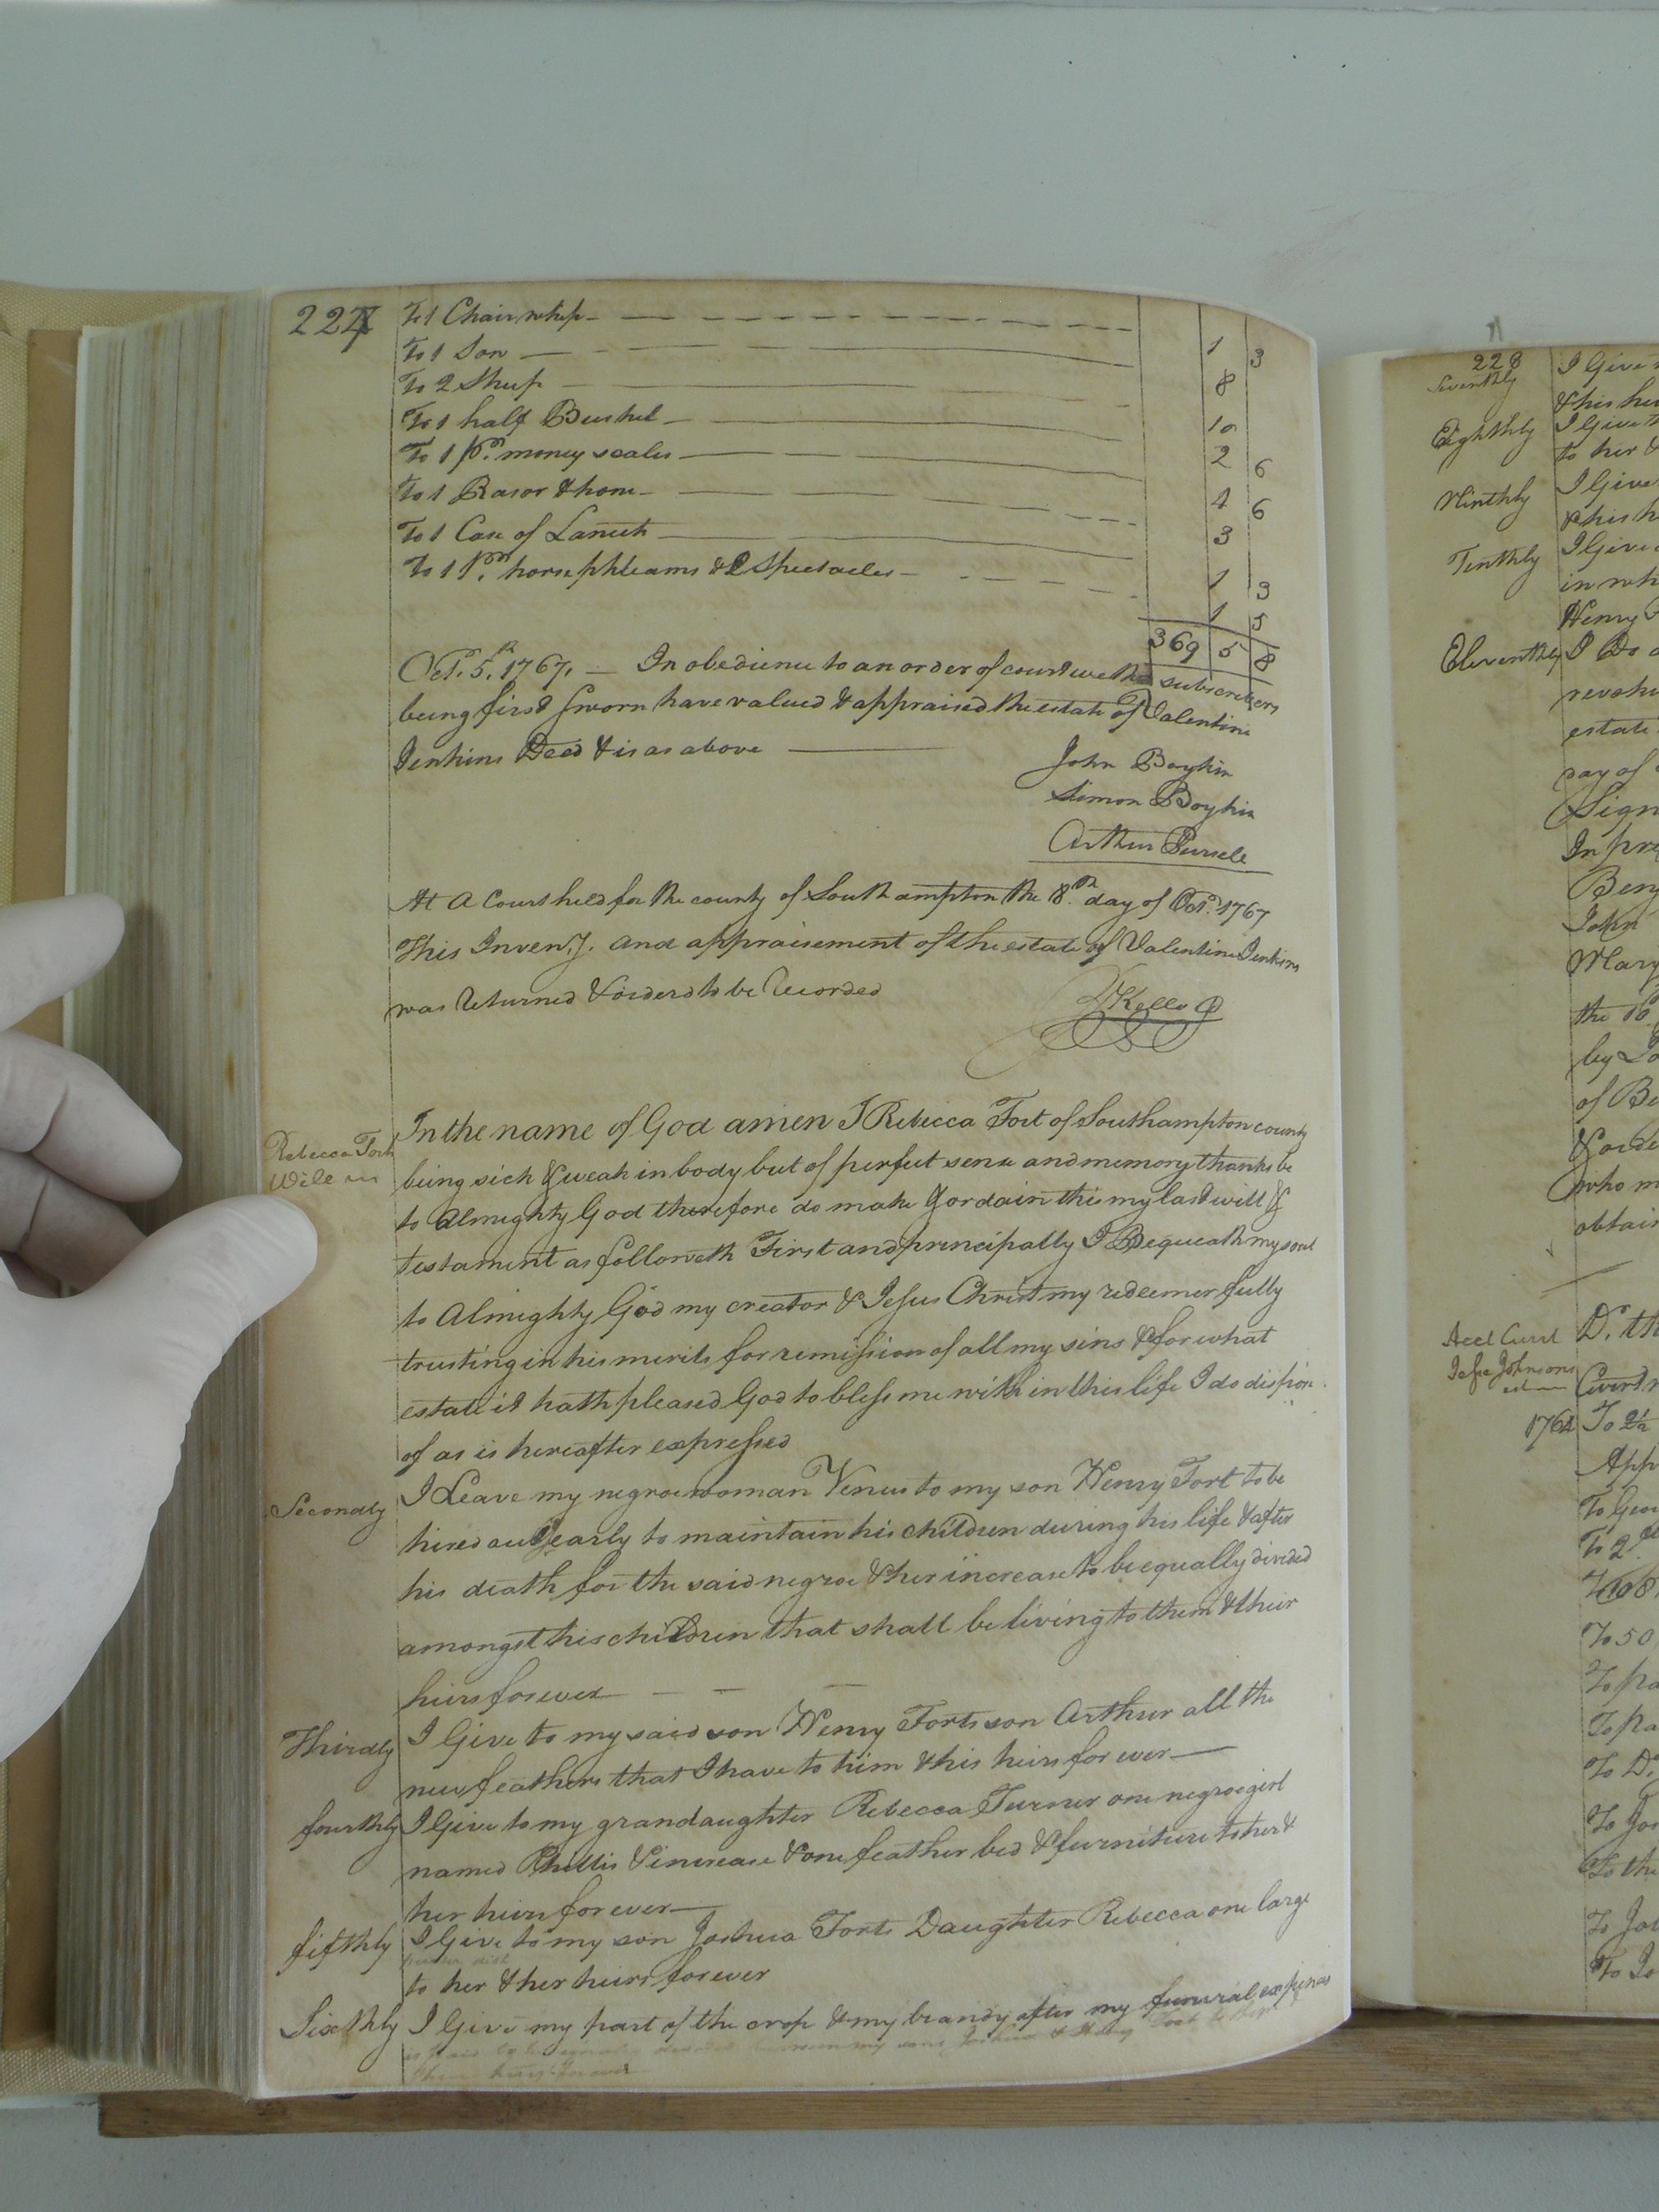 227
To 1 Chair whip 1 3
To 1 Sow 8
To 2 Sheep 10
To 1 half Bushel 2 6
To 1 pr. money scales 4 6
To 1 Rasor & hone 3
To 1 Case of Lancets 1 3
To 1 Pr. horse phleams & Spectacles 1 5
369 5 8
Oct. 5th. 1767. — In obedience to an order of court we the subscribers
being first sworn have valued & appraised the estate of Valentine
Jenkins Decd & is as above
John Boykin
Simon Boykin
Arthur Pursele
At a Court held for the county of Southampton the 8th day of Octr. 1767
This Inven.y. and appraisement of the estate of Valentine Jenkins
was Returned & orderd to be Recorded
Kello
Rebecca Fort
Will
In the name of God amen I Rebecca Fort of Southampton county
being sick & weak in body but of perfect sense and memory thanks be
to almighty God therefore do make & ordain this my last will &
testament as followeth First and principally I Bequeath my soul
to Almighty God my creator & Jesus Christ my redeemer fully
trusting in his merits for remission of all my sins & for what
estate it hath pleased God to bless me with in this life I do dispose
of as is hereafter expressed
Secondly I Leave my negroe woman Venus to my son Henry Fort to be
hired out yearly to maintain his children during his life & after
his death for the said negroe & her increase to be equally divided
amongst his children that shall be living to them & their
heirs forever
Thirdly I Give to my said son Henry Forts son Arthur all the
new feathers that I have to him & his heirs for ever
fourthly I Give to my grandaughter Rebecca Turner one negroe girl
named Phillis & increase & one feather bed & furniture to her &
her heirs for ever
fifthly I Give to my son Joshua Forts Daughter Rebecca one large
pewter dish
to her & her heirs forever
Sixthly I Give my part of the crop & my brandy after my funeral expences
is paid to be equally divided between my sons Joshua & Henry Fort to them &
their heirs forever
228
Seventhly I Give
& his hei
Eighthly I Give t
to her &
Ninthly I Give
& his h
Tenthly I Give
in wh
Henry
Eleventhly I Do
revoki
estate
day of
Sign
In pre
Benj
John
Mary
the
by
of Be
& orde
who m
obtain
Acct Currt
Jesse Johnsons
est
Dr. th
Currt
1764 To
App
To Geo
To 2
To 50
To pa
To pa
To D.
To Jos
To the
To Jo
To Jo